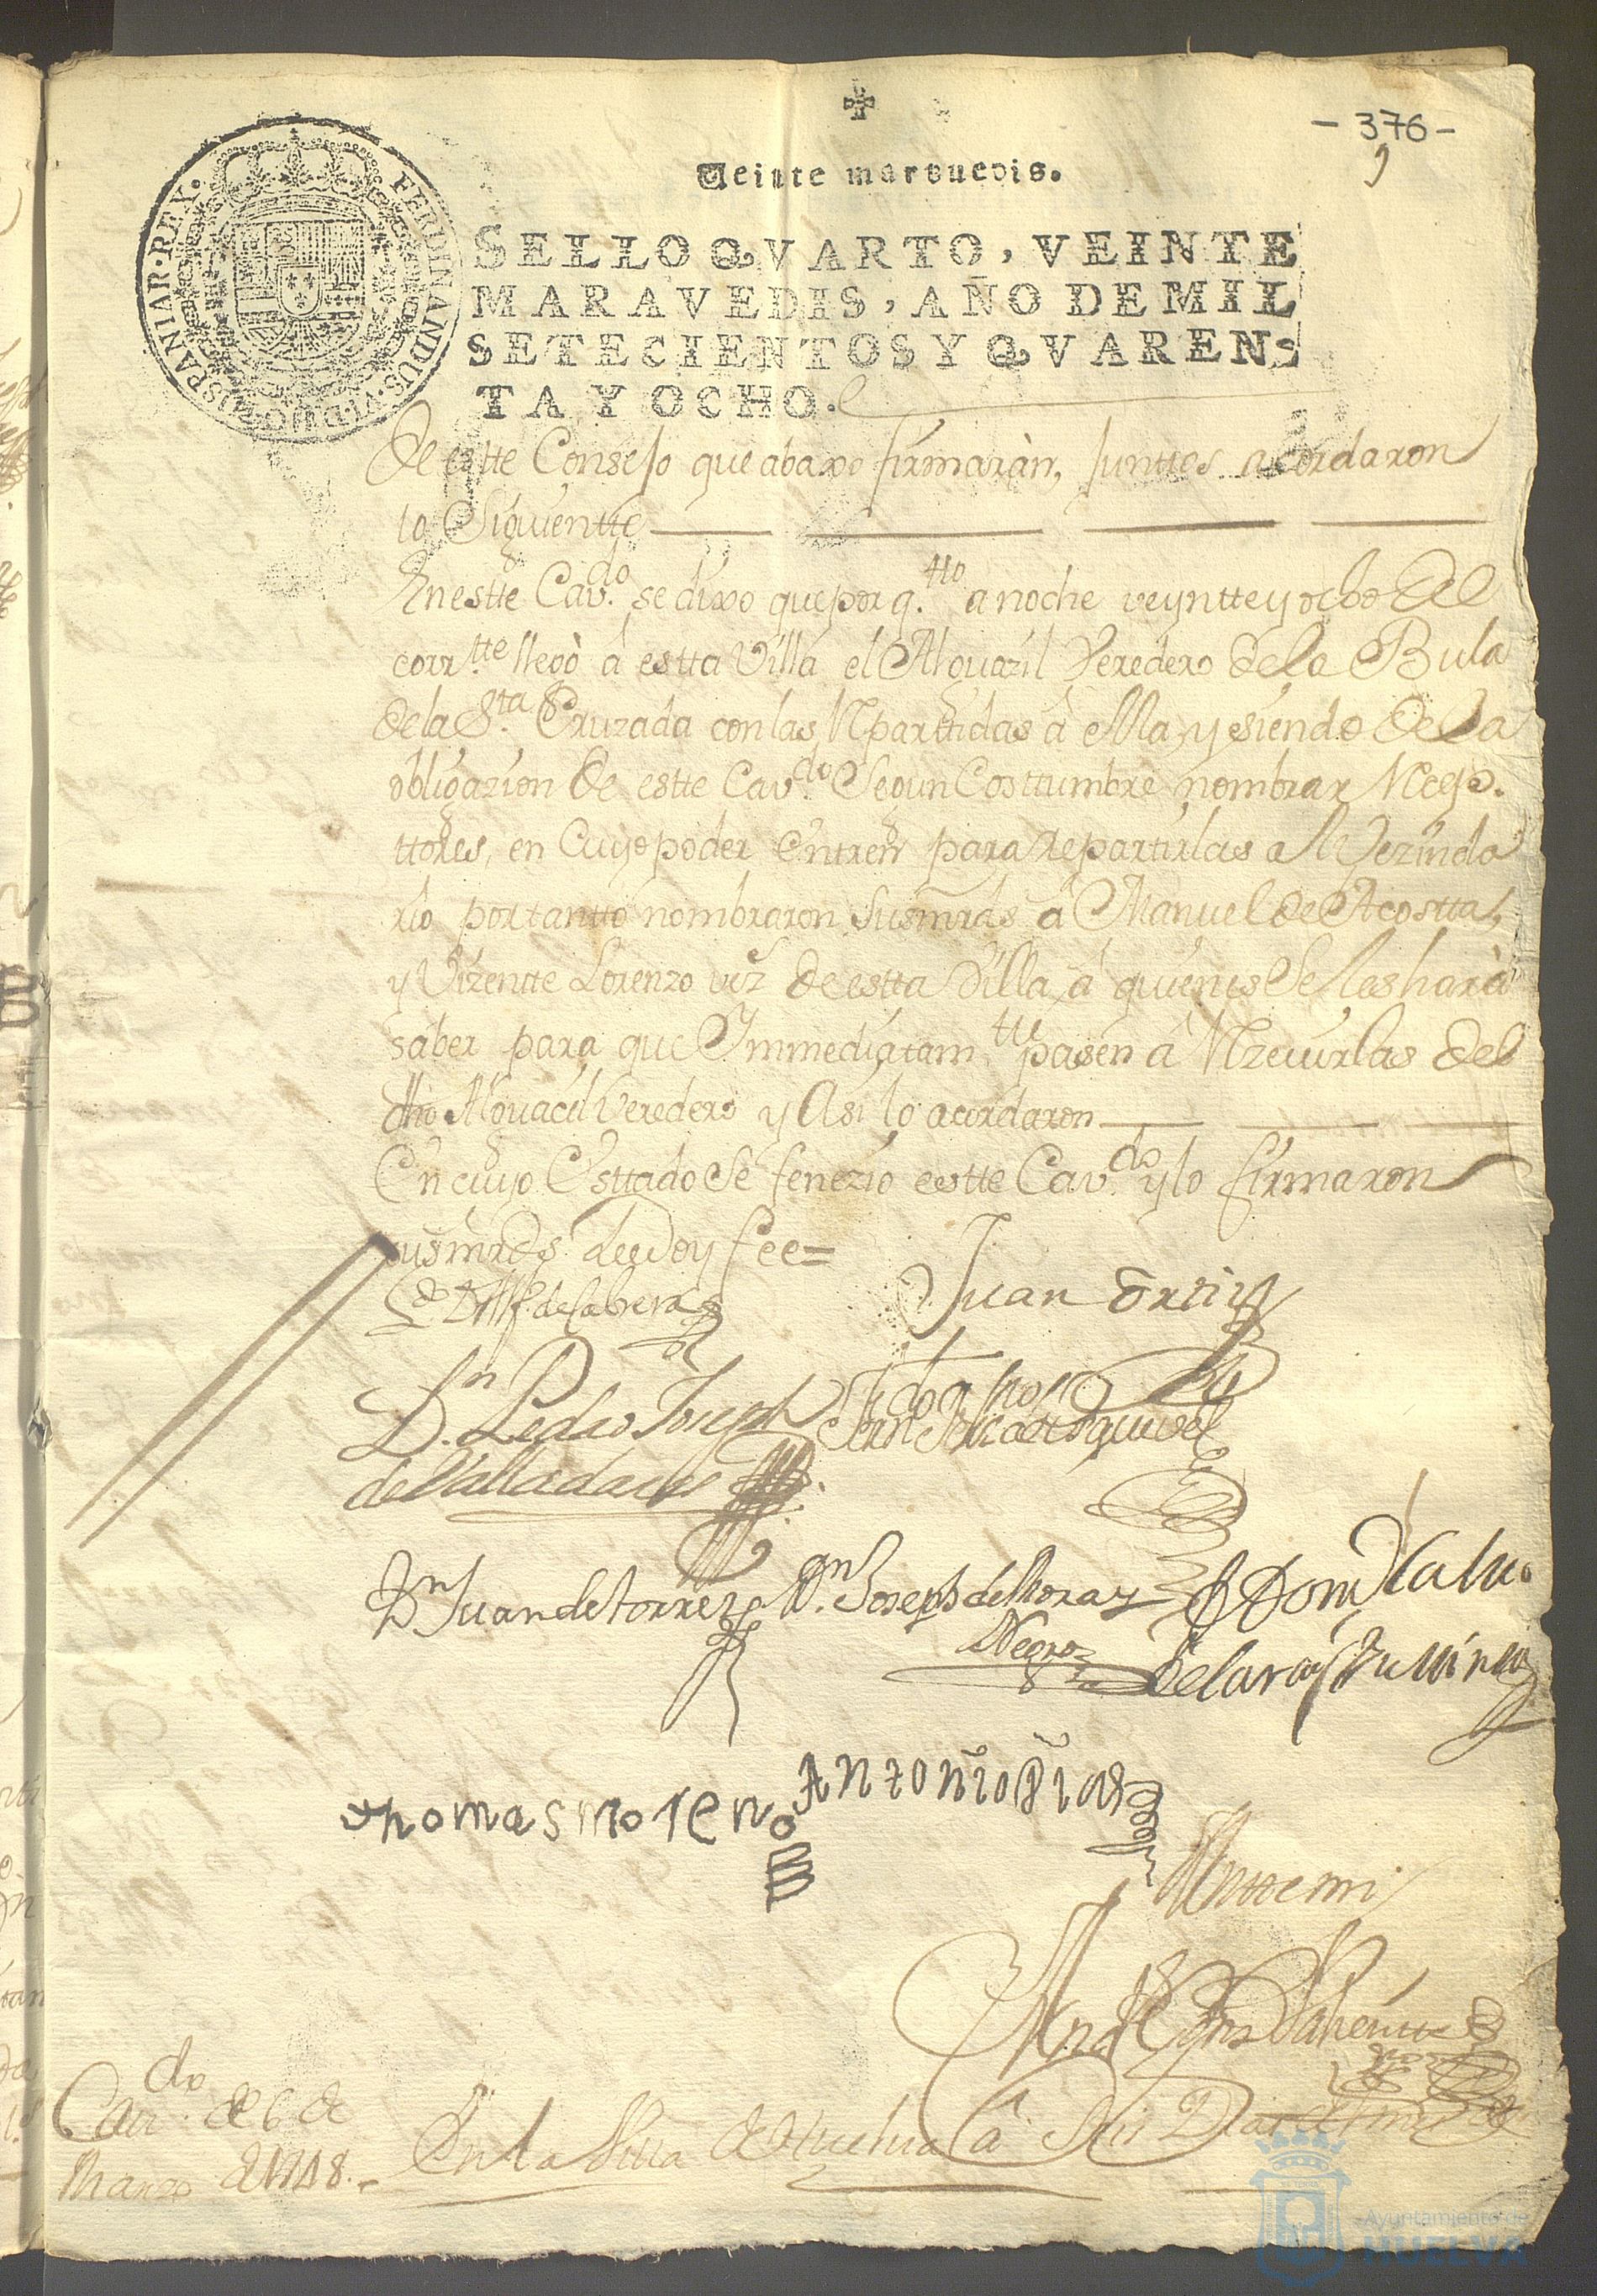 - 376 -
9
Veinte maravedis.
FERDINANDUS·VI·D·G·HISPANIAR·REX·
SELLO QVARTO, VEINTE
MARAVEDIS, AÑO DE MIL
SETECIENTOS Y QVAREN-
TA Y OCHO.
de estte Consejo que abaxo firmaràn, Junttos acordaron
lo Siguientte
En estte Cav.do se dixo que por q.tto a noche veyntte y ocho del
corr.tte llegò â estta Villa el Alguazil Veredero de la Bula
de la S.ta Cruzada con las Rparttidas â ella, y siendo de la
obligazion de estte Cav.do Segun Costtumbre nombrar Rcep-
ttores, en Cuyo poder Entren para repartirlas al Vezinda
rio por tantto nombraron Susmrds â Manuel de Acostta,
y Vizentte Lorenzo vez.s de estta Villa, â quienes Se les harà
saber para que Immediatam.tte pasen â Rzevirlas del
dho Alguacil Veredero y Asi lo acordaron
En cuyo Esttado Se fenezio estte Cav.do y lo firmaron
susmrds. de q doy fee=
de Cabrera
Juan Ortiz
D.n Pedro Joseph
de Valladares
de Esquivel
D.n Juan de torres
D.n Joseph de Mora y
Negro
Thomas moreno
Antonio Dias
Antte mi
Cav.do de 6 de
Marzo de 1748.
En la Villa de Huelva â Seis Dias del mes de
Ayuntamiento de
HUELVA